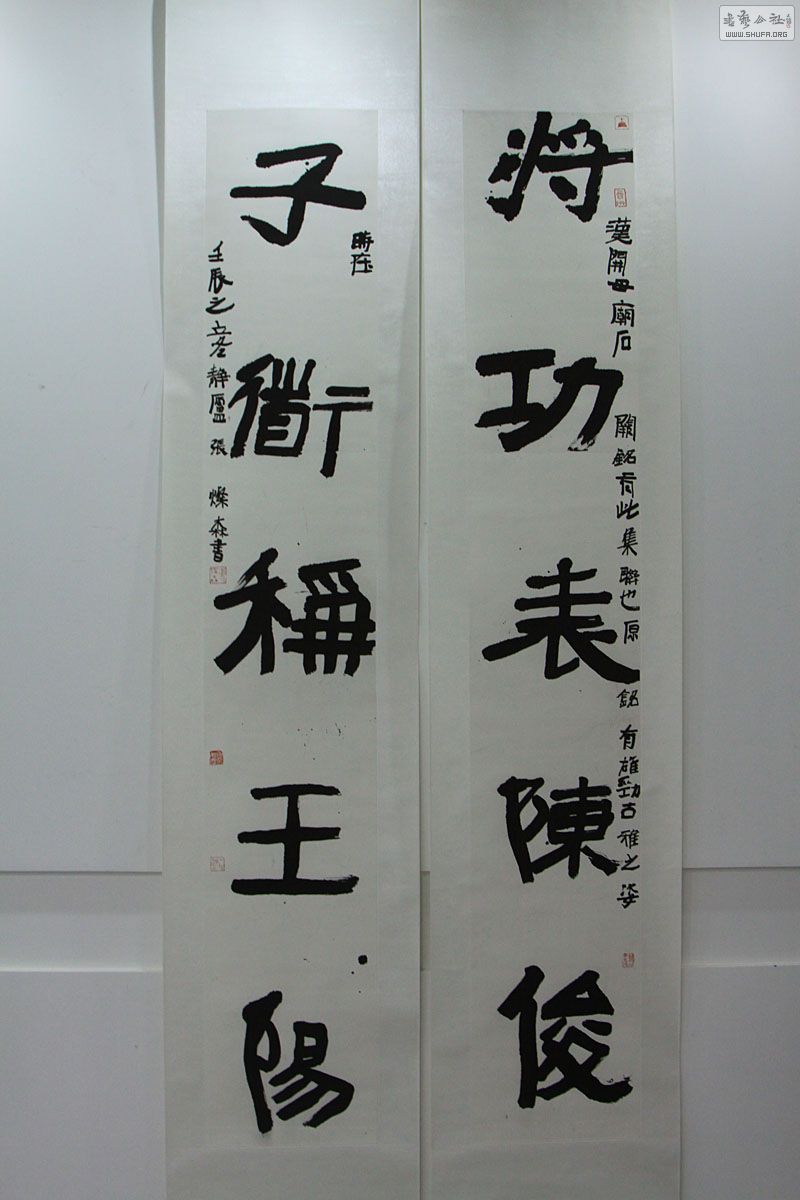 将功表陳俊
漢開母廟石闕銘有此集聯也原銘有雄勁古雅之姿
子衜稱王陽
時在
壬辰之立冬靜廬張燦森書
書藝公社
WWW.SHUFA.ORG